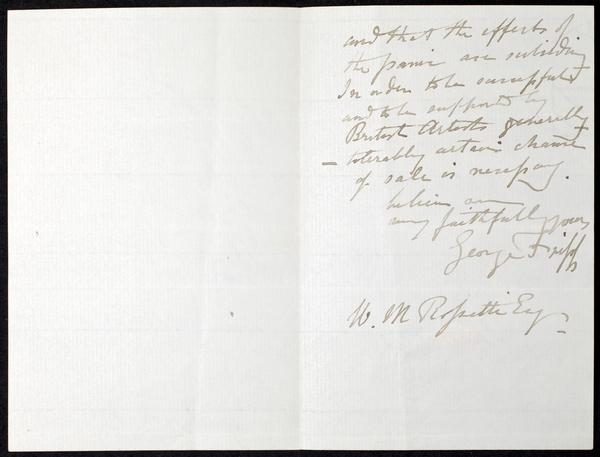 and that the effects of
the panic are subsiding
In order to be successful
and to be supported by
British Artists generally
– tolerably certain chance
of sale is necessary.
believe me
very faithfully yours
George Fripp
W. M Rossetti Esq